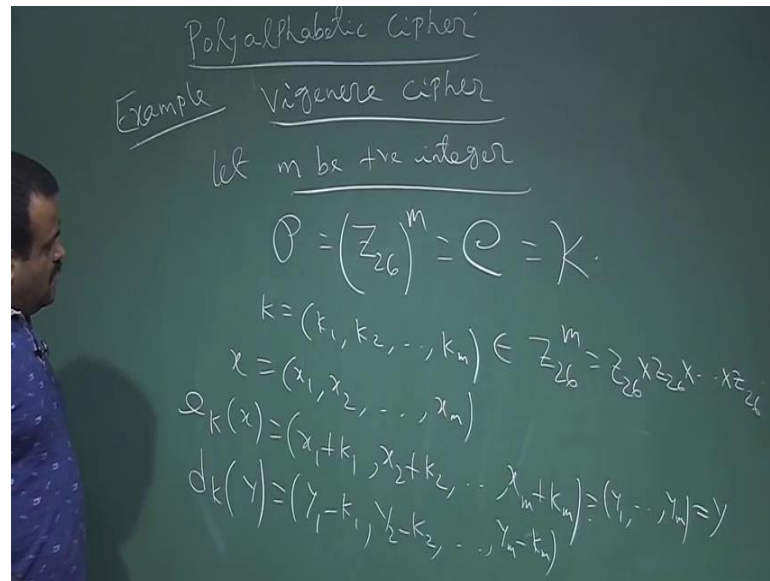 Polyalphabetic Cipher
Example Vigenere Cipher
let m be +ve integer
P = (Z_26)^m = C = K.
k = (k_1, k_2, .., k_m) ∈ Z_26^m = Z_26 × Z_26 × ... × Z_26
x = (x_1, x_2, ..., x_m)
e_k(x) = (x_1+k_1, x_2+k_2, .., x_m+k_m) = (y_1, .., y_m) = y
d_k(y) = (y_1-k_1, y_2-k_2, .., y_m-k_m)